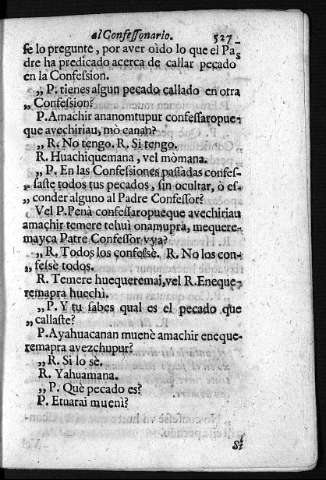 al Confessonario. 527
se lo pregunte, por aver oìdo lo que el Pa
dre ha predicado acerca de callar pecado
en la Confession.
„ P. tienes algun pecado callado en otra
„ Confession?
P. Amachir ananomtupur confessaropue-
que avechiriau, mò canan?
„ R. No tengo. R. Si tengo.
R. Huachiquemana, vel mòmana.
„ P. En las Confessiones passadas confes-
„ saste todos tus pecados, sin ocultar, ò es-
„ conder alguno al Padre Confessor?
Vel P. Penà confessaropueque avechiriau
amachir temere tehui onamupra, mequere-
mayca Patre Confessor vya?
„ R. Todos los confessè. R. No los con-
„ fessè todos.
R. Temere huequeremai, vel R. Eneque-
remapra huechi.
„ P. Y tu sabes qual es el pecado que
„ callaste?
P. Ayahuacanan muenè amachir eneque-
remapra avezchupur?
„ R. Si lo sè.
R. Yahuamana.
„ P. Què pecado es?
P. Etuarai mueni?
Si